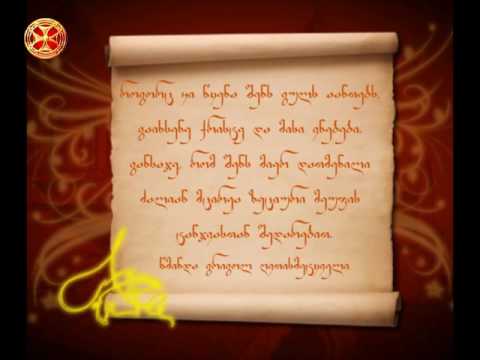 როგორც კი წყენა შენს გულს აანთებს,
გაიხსენე ქრისტე და მისი ვნებები.
განსაჯე, რომ შენს მიერ დათმენილი
ძალიან მცირეა ზეციური მეუფის
ტანჯვასთან შედარებით.
წმინდა გრიგოლ ღვთისმეტყველი